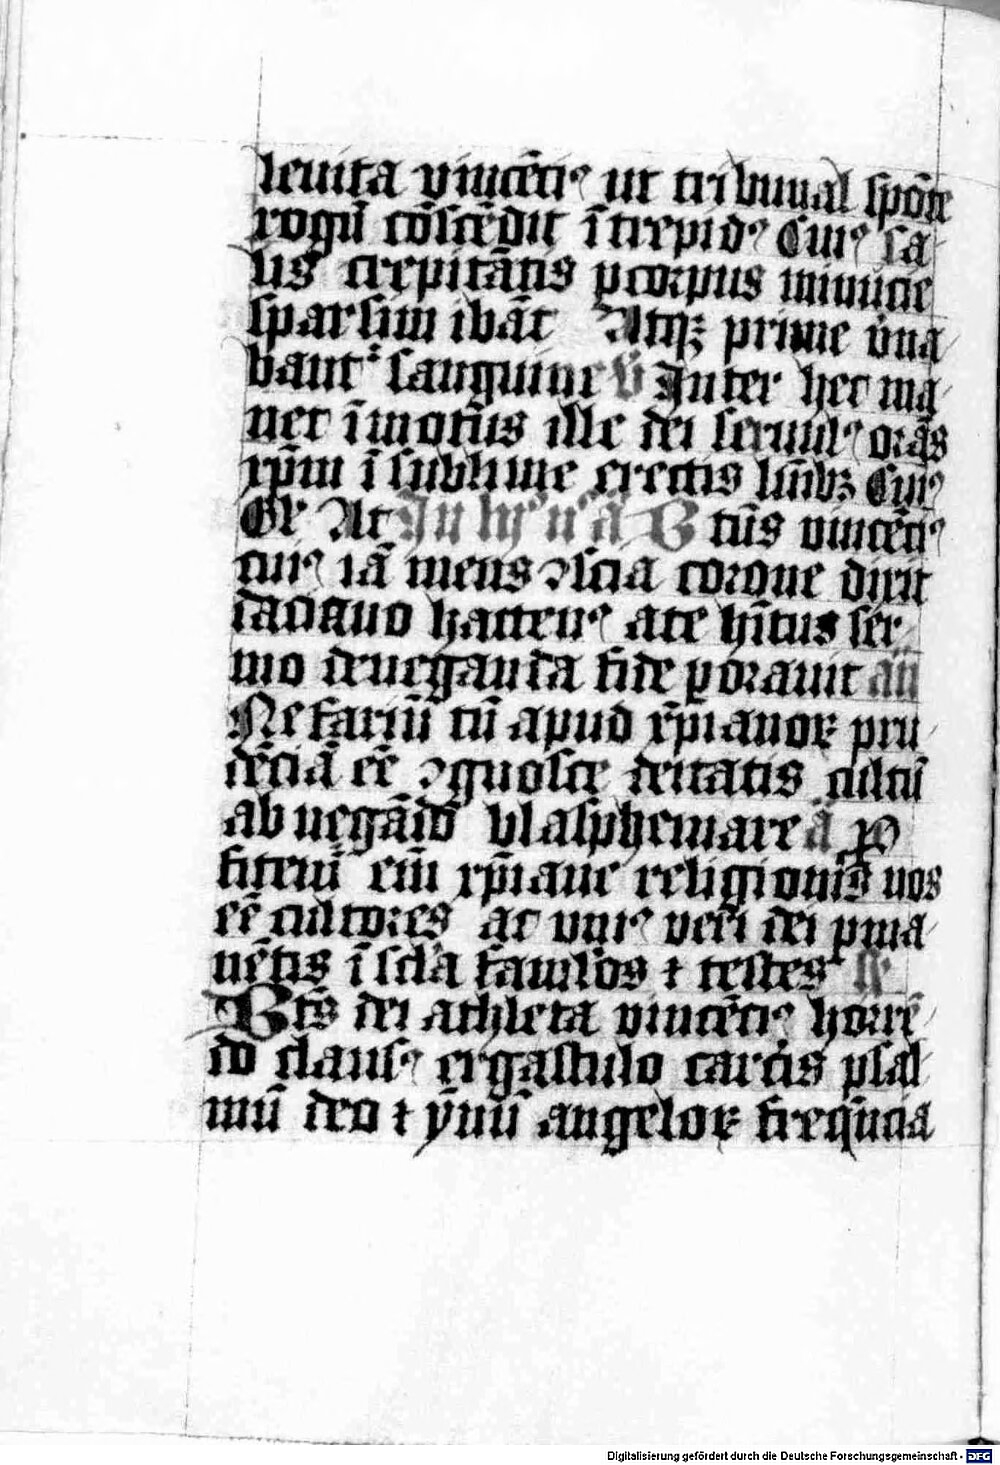 leuita vincēci⁹ ut tribunal spōte
rogū cōscēdit ītrepid⁹ Cui⁹ sa-
lis crepitātis p corpus minucie
sparsim ibāt Atqꝫ prune vna-
bant᷑ sanguine v̄ Inter hec ma-
net īmotus ille dei seruul⁹ orās
xp̄m ī sublime erectis lūībꝫ Cui⁹
Gł At In ii n a B tūs vincēci⁹
cui⁹ iā mens ꝯscia corone dixit
daciano hacten⁹ a te hītus ser-
mo deneganda fide ꝑorauit an
Nefariū tū apud xp̄ianoꝝ pru-
dēciā eē ꝯgnosce deitatis cultū
abnegādo blasphemare ā Pro
fitem̄ eīm xp̄iane religionis nos
eē cultores ac vni⁹ veri dei pma-
nētis ī scl̄a famlos ⁊ testes
Btūs dei athleta vincēci⁹ horrē-
do claus⁹ ergastulo carcīs psal-
mū deo ⁊ ymnū angeloꝝ freqn̄cia
Digitalisierung gefördert durch die Deutsche Forschungsgemeinschaft - DFG